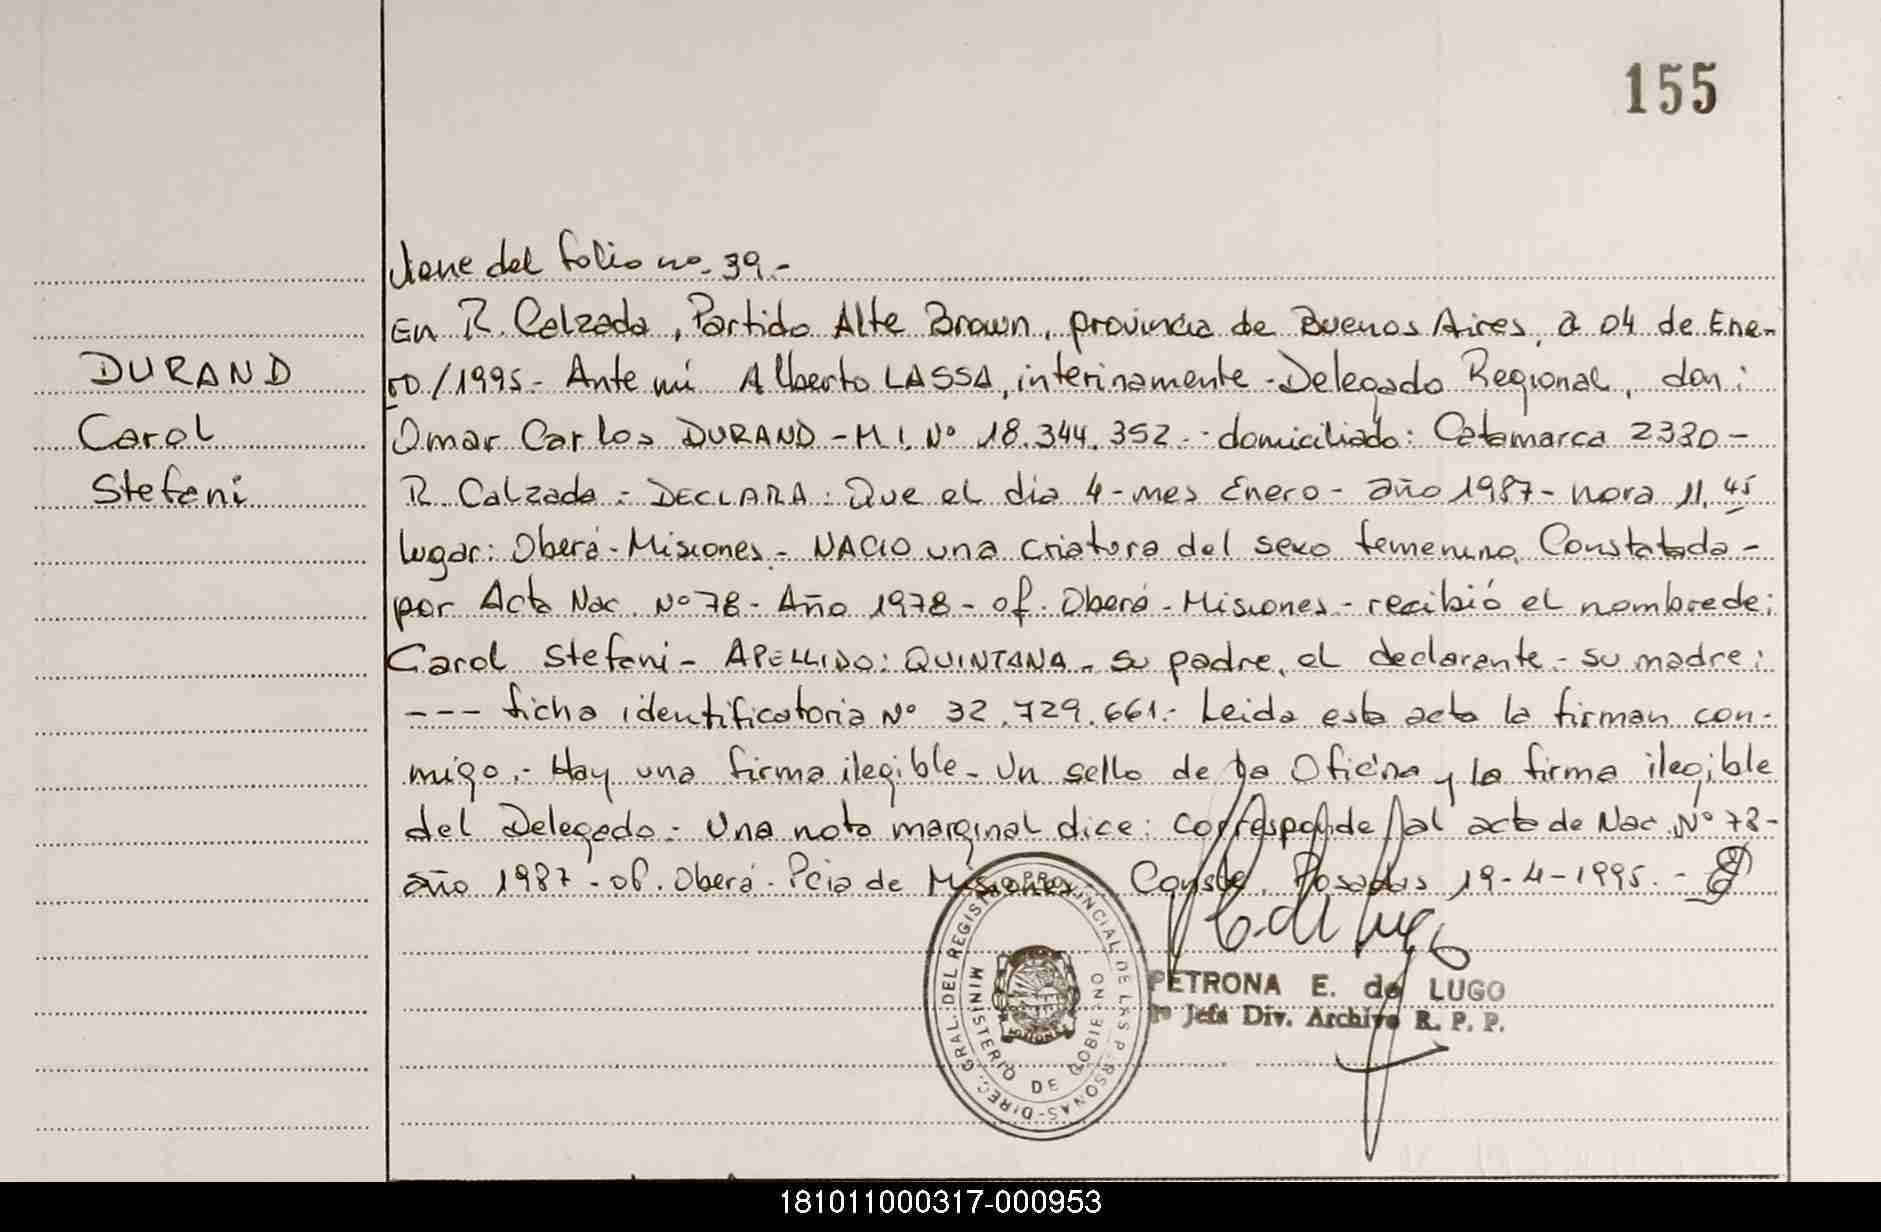 155
Viene del folio no. 39.-
En R. Calzada, Partido Alte Brown, provincia de Buenos Aires, a 04 de Ene-
DURAND
ro/1995.- Ante mí Alberto LASSA, interinamente - Delegado Regional, don:
Carol
Omar Carlos DURAND - M.I. Nº 18.344.352.- domiciliado: Catamarca 2320 -
Stefani
R. Calzada.- DECLARA: Que el dia 4 - mes Enero - año 1987 - hora 11,45
lugar: Oberá - Misiones.- NACIO una criatura del sexo femenino. Constatada -
por Acta Nac. Nº 78 - Año 1978 - of. Oberá - Misiones - recibió el nombre de:
Carol Stefani - APELLIDO: QUINTANA - su padre, el declarante - su madre:
--- ficha identificatoria Nº 32.729.661.- Leida esta acta la firman con-
migo.- Hay una firma ilegible - Un sello de la Oficina y la firma ilegible
del Delegado - Una nota marginal dice: corresponde al acta de Nac. Nº 78 -
año 1987 - of. Oberá - Pcia de Misiones.- Conste. Posadas 19-4-1995.-
PETRONA E. de LUGO
Jefa Div. Archivo R. P. P.
DIREC. GRAL. DEL REGISTRO PROVINCIAL DE LAS PERSONAS
MINISTERIO DE GOBIERNO
181011000317-000953